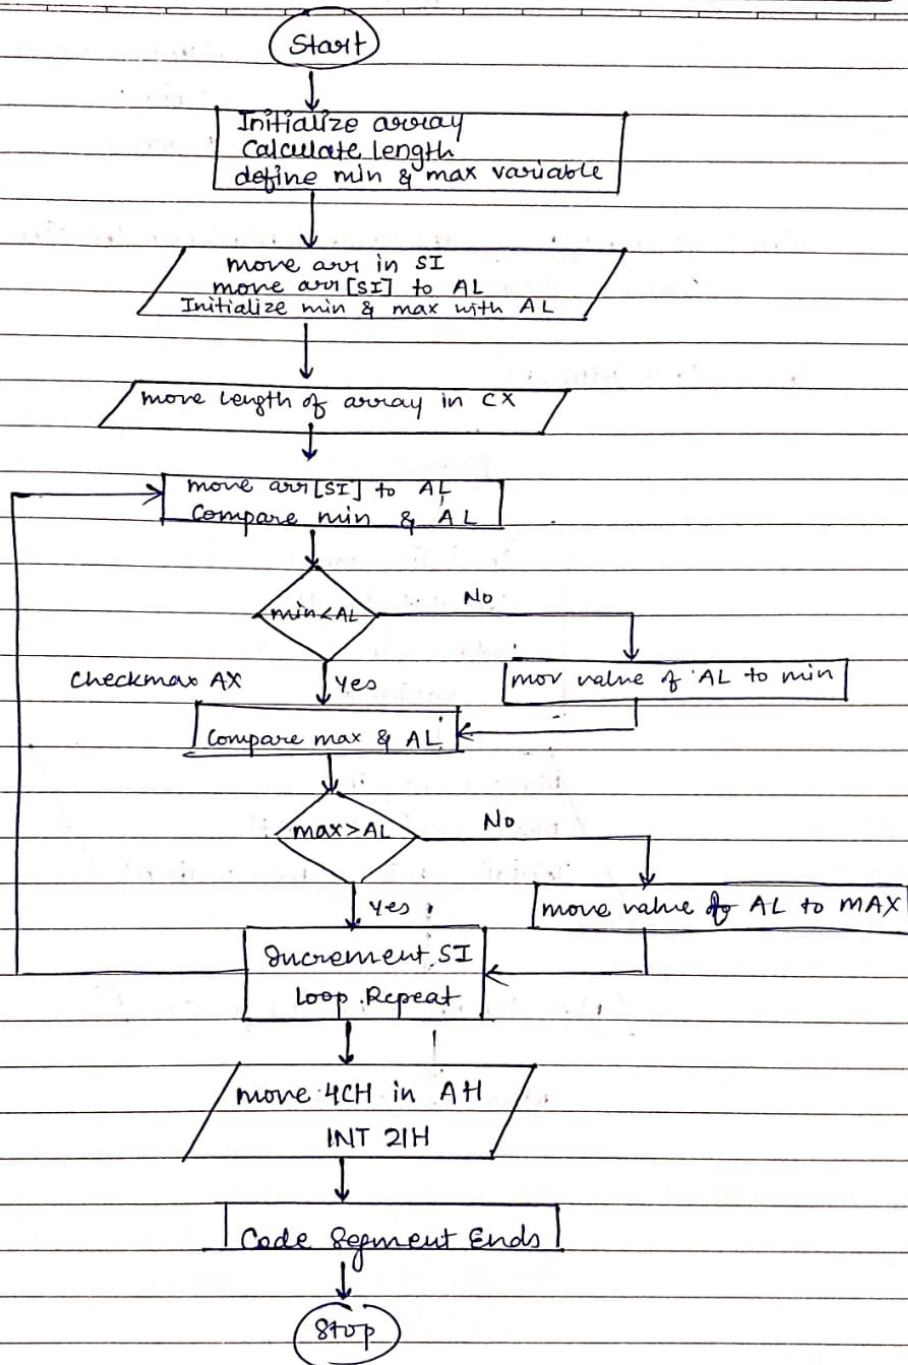 Start
Initialize array
Calculate length
define min & max variable
move arr in SI
move arr[SI] to AL
Initialize min & max with AL
move length of array in CX
move arr[SI] to AL
Compare min & AL
min<AL
No
checkmax AX
Yes
mov value of AL to min
Compare max & AL
max>AL
No
Yes
move value of AL to MAX
Increment SI
Loop Repeat
move 4CH in AH
INT 21H
Code Segment Ends
Stop